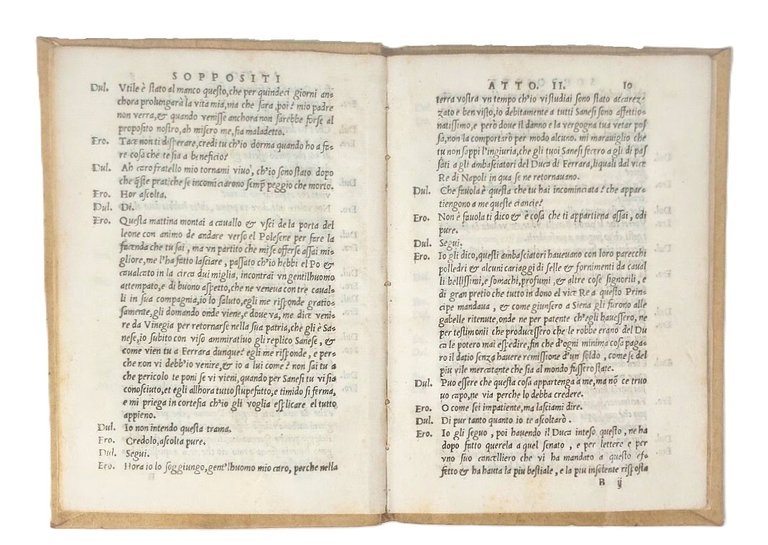 SOPPOSITI
Dul. Vtile è stato al manco questo, che per quindeci giorni an-
chora prolungarà la vita mia, ma che sara, poi? mio padre
non verra, & quando venisse anchora non sarebbe forse al
proposito nostro, ah misero me, sia maladetto.
Ero. Tace non ti disperare, credi tu ch'io dorma quando ho a fa-
re cosa che te sia a beneficio?
Dul. Ah caro fratello mio tornami viuo, ch'io sono stato dopo
che queste pratiche se incominciarono semp peggio che morto.
Ero. Hor ascolta.
Dul. Di.
Ero. Questa mattina montai a cauallo & vsci de la porta del
leone con animo de andare verso el Polesene per fare la
facenda che tu sai, ma vn partito che mi se offerse assai mi-
gliore, me l'ha fatto lasciare, passato ch'io hebbi el Po &
caualcato in la circa dui miglia, incontrai vn gentilhuomo
attempato, e di buono aspetto, che ne veneva con tre caual-
li in sua compagnia, io lo saluto, egli me risponde gratio-
samente, gli domando onde viene, e doue va, me dice veni-
re da Vinegia per retornarse nella sua patria, che gli è Sa-
nese, io subito con viso ammiratiuo gli replico Sanese, &
come vien tu a Ferrara dunque? egli me risponde, e per-
che non vi debb'io venire, & io a lui come? non sai tu a
che pericolo te poni se vi vieni, quando per Sanese tu vi sia
conosciuto, et egli alhora tutto stupefatto, e timido si ferma,
e mi priega in cortesia ch'io gli voglia esplicare el tutto
appieno.
Dul. Io non intendo questa trama.
Ero. Credolo, ascolta pure.
Dul. Segui.
Ero. Hora io lo soggiungo, gent'lhuomo mio caro, perche nella
ATTO. II. 10
terra vostra vn tempo ch'io vi studiai sono stato accarez-
zato e ben visto, io debitamente a tutti Sanesi sono affettio-
natissimo, e però doue il danno e la vergogna tua vetar pos-
sa, non la comportarò per modo alcuno. mi marauiglio che
tu non sappi l'ingiuria, che gli tuoi Sanesi fecero a gli di pas-
sati a gli ambasciatori del Duca di Ferrara, liquali dal vice
Re di Napoli in qua se ne retornauano.
Dul. Che fauola è questa che tu hai incominciata? che appar-
tiengono a me queste ciancie?
Ero. Non è fauola ti dico & è cosa che ti appartiena assai, odi
pure.
Dul. Segui.
Ero. Io gli dico, questi ambasciatori haueuano con loro parecchi
polledri & alcuni cariaggi di selle & fornimenti da caual
li bellissimi, e somachi, profumi, & altre cose signorili, e
di gran pretio che tutto in dono el vice Re a questo Prin-
cipe mandaua, & come giunsero a Siena gli furono alle
gabelle ritenute, onde ne per patente ch'egli hauessero, ne
per testimonii che producessero che le robbe erano del Du
ca le potero mai espedire, fin che d'ogni minima cosa paga-
ro il datio senza hauere remissione d'un soldo, come se del
piu vile mercatante che sia al mondo fussero state.
Dul. Puo essere che questa cosa appartenga a me, ma nō ce truo
uo capo, ne via perche lo debba credere.
Ero. O come sei impatiente, ma lasciami dire.
Dul. Di pur tanto quanto io te ascoltarò.
Ero. Io gli seguo, poi hauendo il Duca inteso questo, ne ha
dapo fatto querela a quel senato, e per lettere e per
vno suo cancelliero che vi ha mandato a questo ef-
fetto & ha hauta la piu bestiale, e la piu insolente risposta
B ij